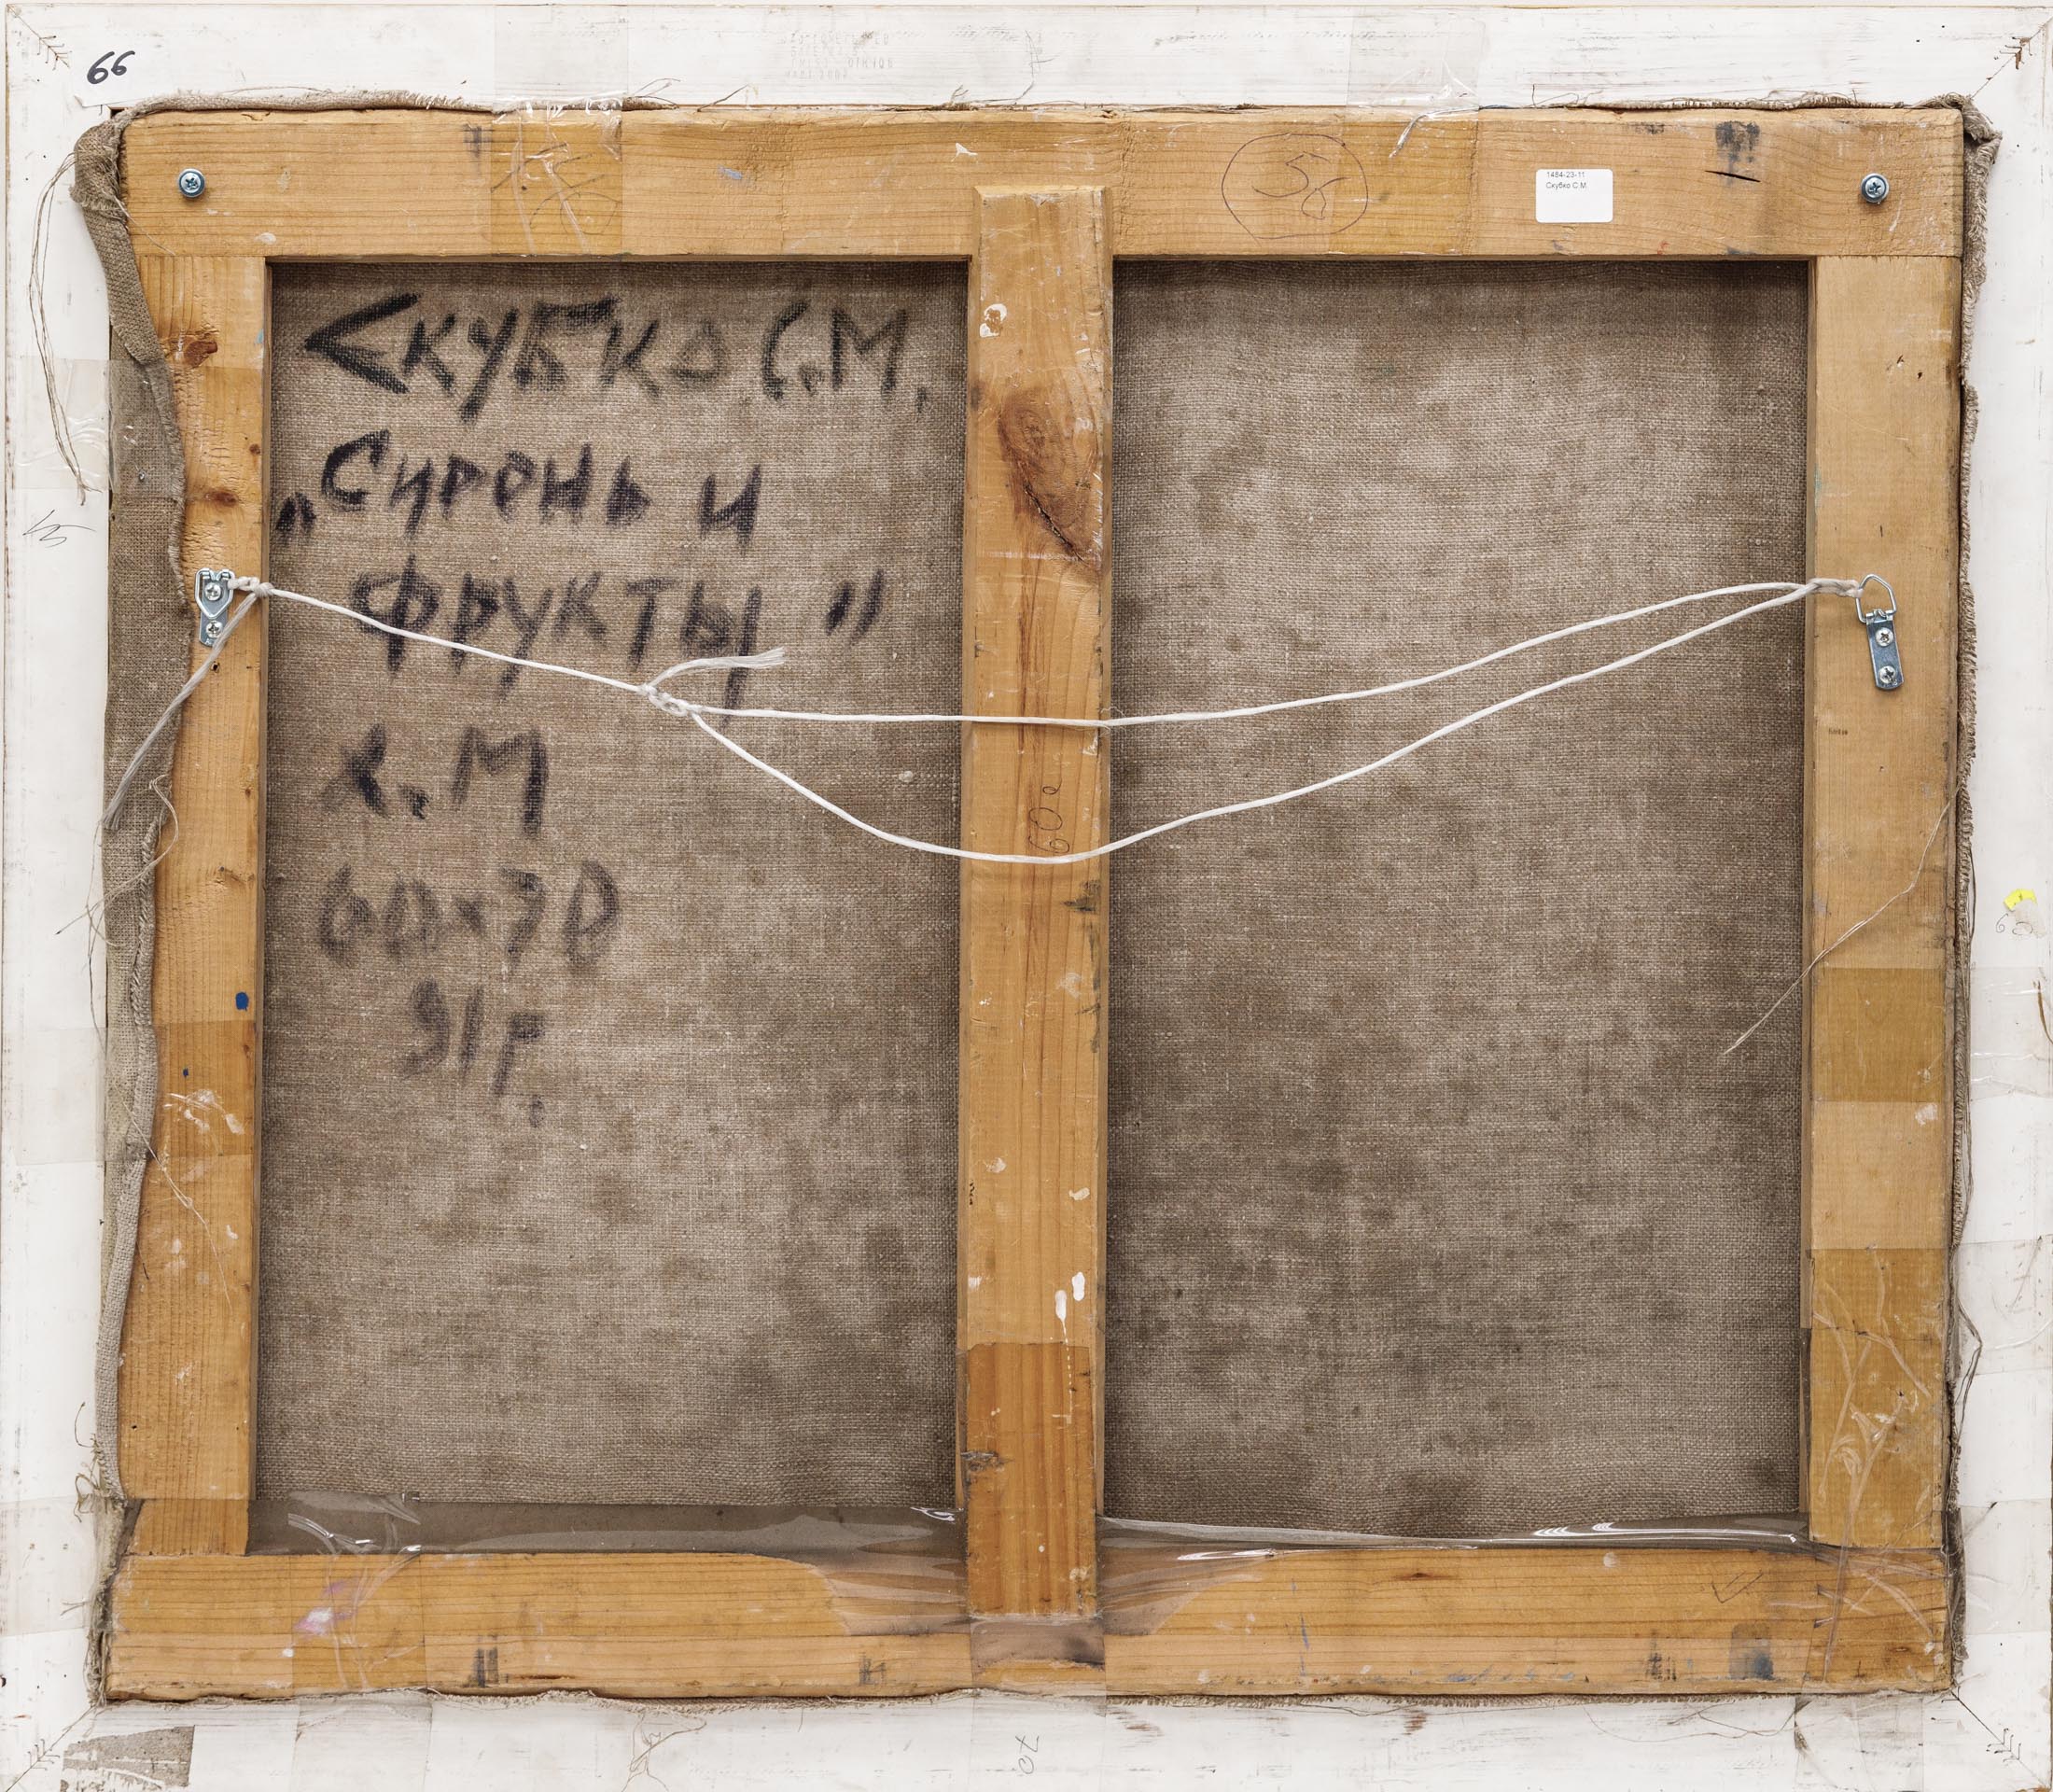 66
58
1484-23-11
Скубко С.М.
Скубко С.М.
„Сирень и
фрукты"
х.м
60х70
91г.
70